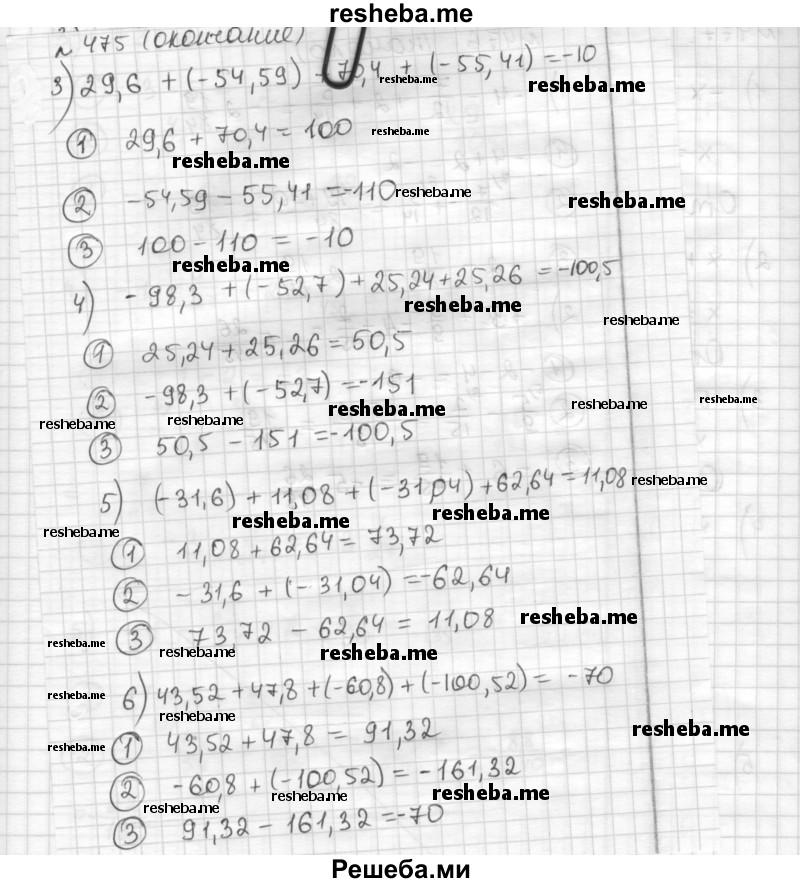 resheba.me
№ 475 (окончание)
3) 29,6 + (-54,59) + 70,4 + (-55,41) = -10
resheba.me resheba.me
① 29,6 + 70,4 = 100 resheba.me
resheba.me
② -54,59 - 55,41 = -110 resheba.me
resheba.me
③ 100 - 110 = -10
resheba.me
4) -98,3 + (-52,7) + 25,24 + 25,26 = -100,5
resheba.me
resheba.me
① 25,24 + 25,26 = 50,5
② -98,3 + (-52,7) = -151
resheba.me resheba.me resheba.me
resheba.me resheba.me
③ 50,5 - 151 = -100,5
5) (-31,6) + 11,08 + (-31,04) + 62,64 = 11,08 resheba.me
resheba.me resheba.me
resheba.me
① 11,08 + 62,64 = 73,72
② -31,6 + (-31,04) = -62,64
resheba.me
③ 73,72 - 62,64 = 11,08
resheba.me resheba.me resheba.me
6) 43,52 + 47,8 + (-60,8) + (-100,52) = -70
resheba.me
resheba.me
resheba.me
resheba.me
① 43,52 + 47,8 = 91,32
② -60,8 + (-100,52) = -161,32
resheba.me resheba.me resheba.me
③ 91,32 - 161,32 = -70
Решеба.ми